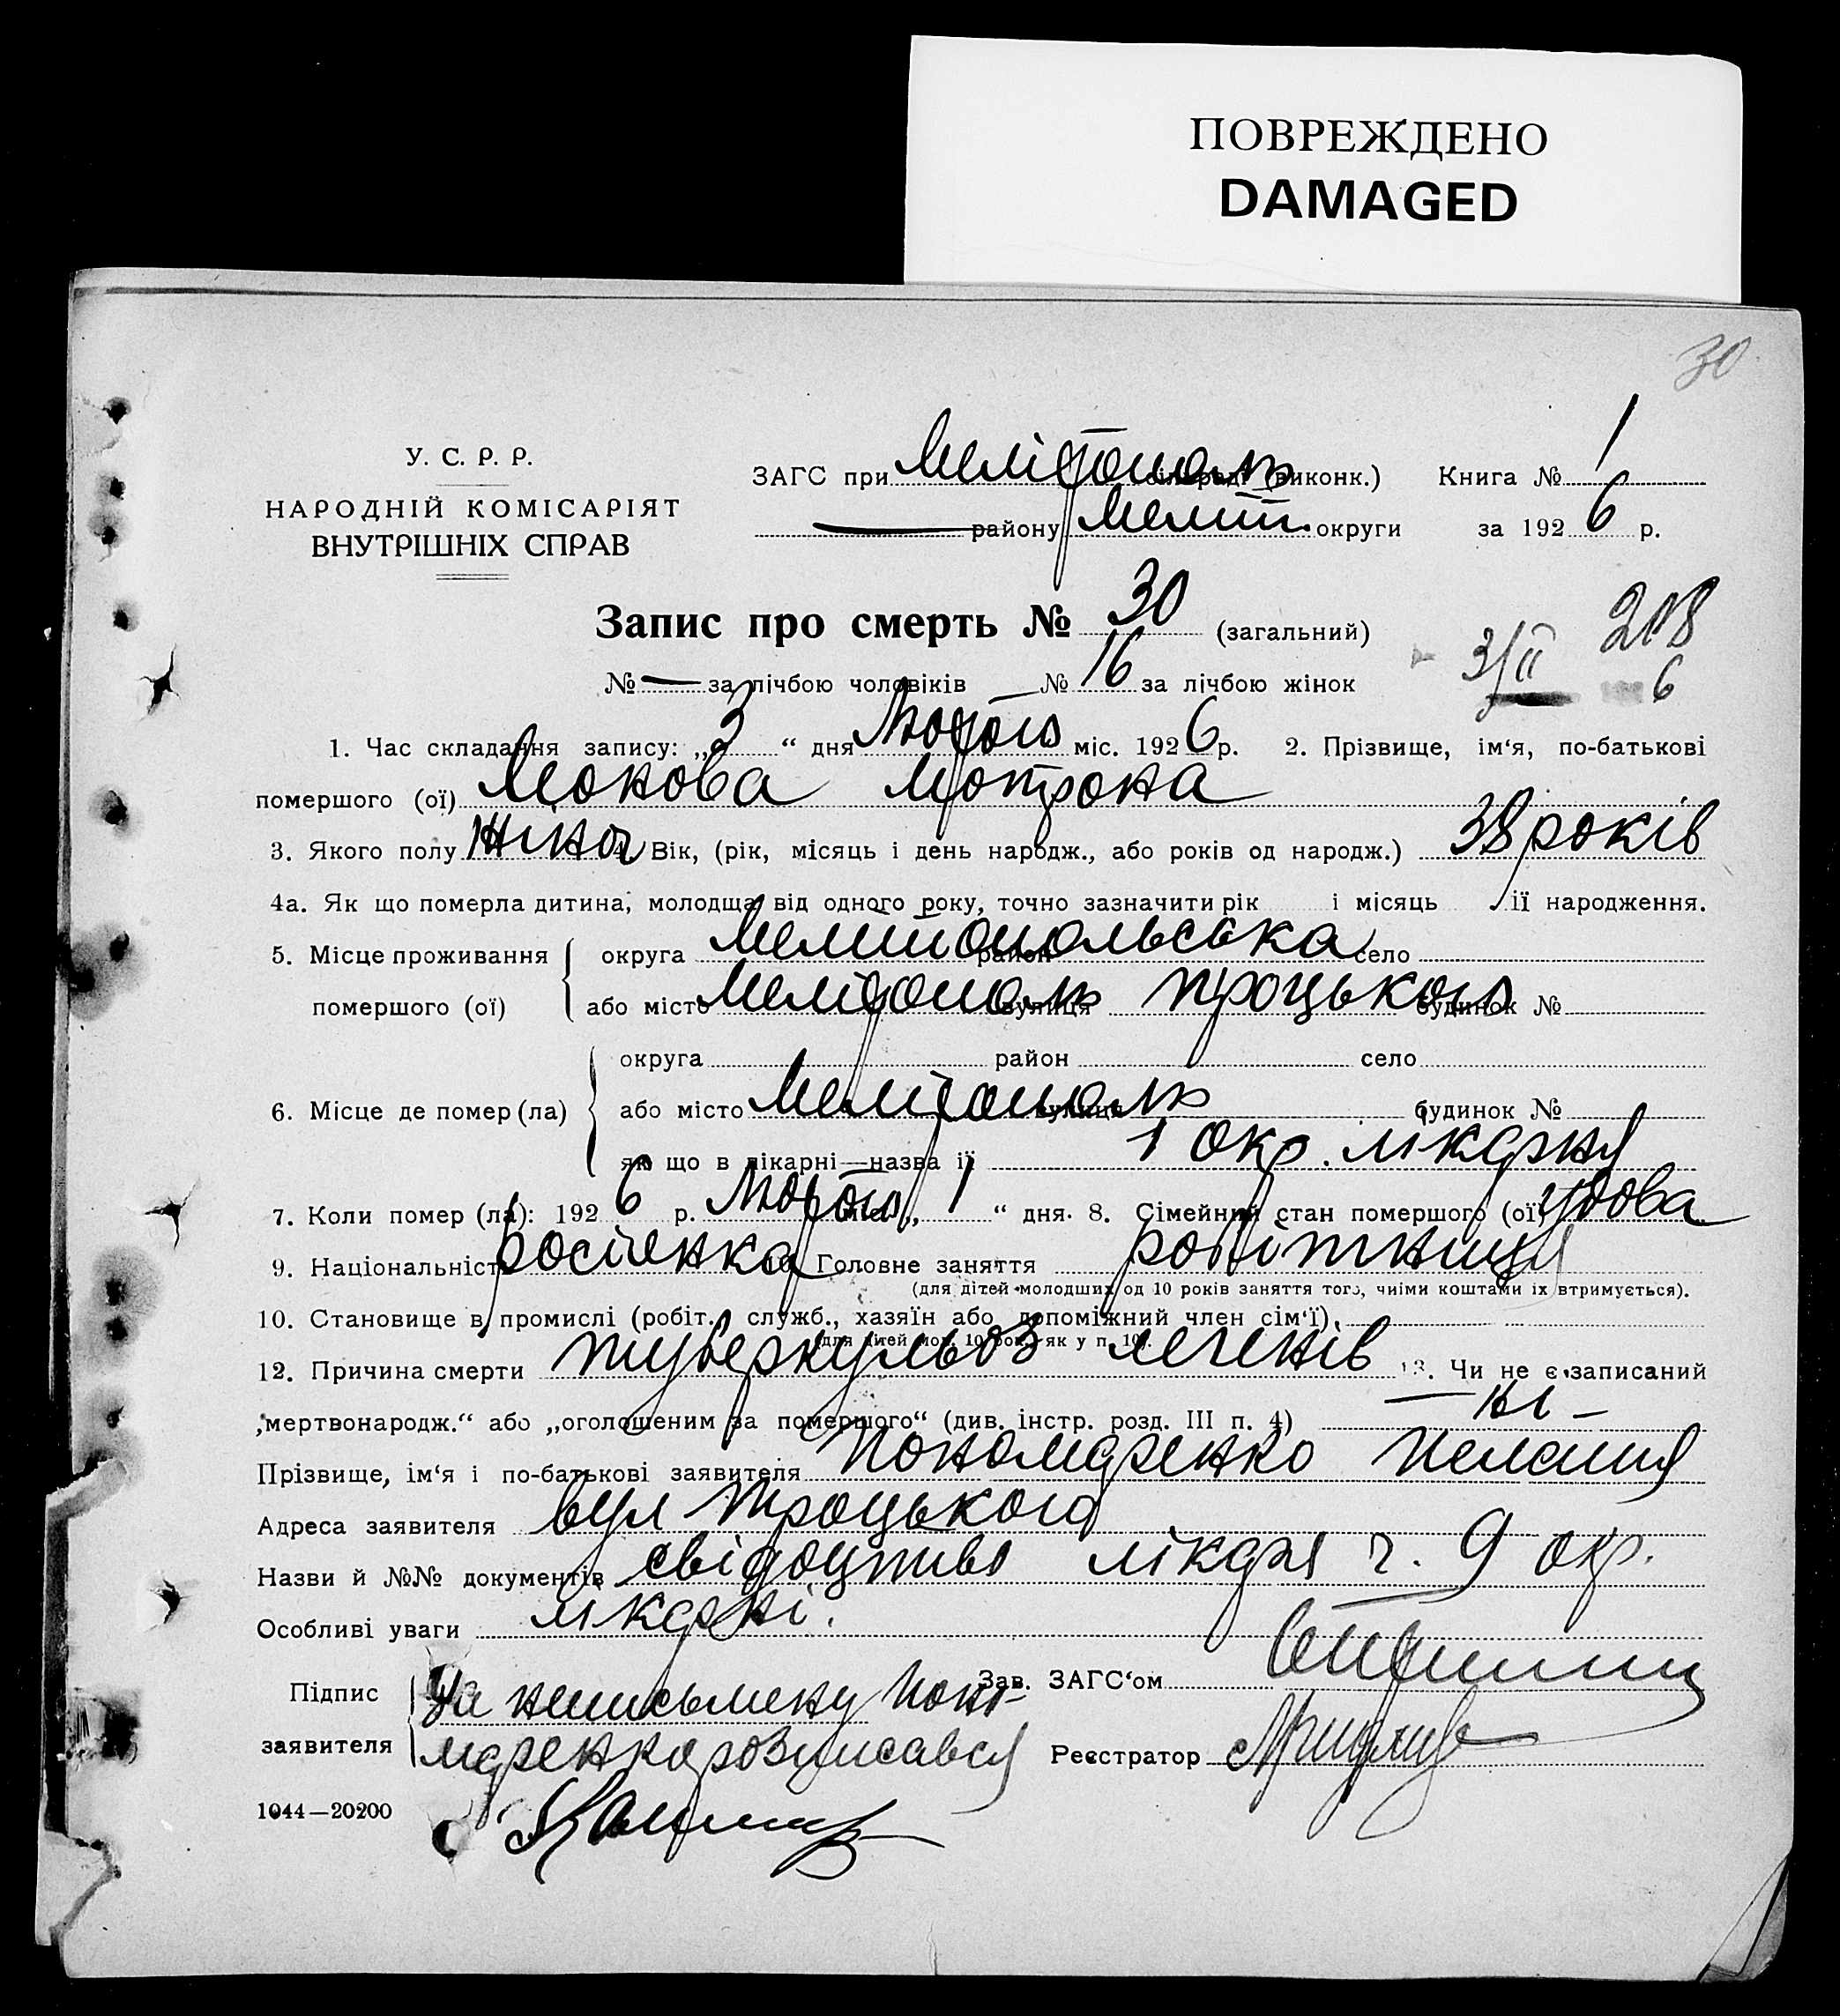 ПОВРЕЖДЕНО
DAMAGED
30
У. С. Р. Р.
НАРОДНІЙ КОМІСАРІЯТ
ВНУТРІШНІХ СПРАВ
ЗАГС при Мелітополь сільраді (виконк.) Книга № 1
— району Меліт. округи за 1926 р.
Запис про смерть № 30 (загальний)
3/II 208
№ — за лічбою чоловіків № 16 за лічбою жінок
6
1. Час складання запису: „3“ дня Лютого міс. 1926 р. 2. Прізвище, ім‘я, по-батькові
помершого (ої) Мотрона
3. Якого полу жіноч 4. Вік, (рік, місяць і день народж., або років од народж.) 38 років
4а. Як що померла дитина, молодща від одного року, точно зазначити рік і місяць її народження.
5. Місце проживання помершого (ої) округа Мелітопольська район село
або місто Мелітополь вулиця Троцького будинок №
6. Місце де помер (ла) округа район село
або місто Мелітополь вулиця будинок №
як що в лікарні—назва її 1 окр. лікарня
7. Коли помер (ла): 1926 р. Лютого міс. „1“ дня. 8. Сімейний стан помершого (ої) удова
9. Національність росіянка 10. Головне заняття робітниця
(для дітей молодших од 10 років заняття того, чиїми коштами їх втримується).
10. Становище в промислі (робіт., служб., хазяїн або допоміжний член сім‘ї).
(для дітей мол. 10 рок. як у п. 10).
12. Причина смерти туберкульоз легенів 13. Чи не є записаний
„мертвонародж.“ або „оголошеним за померщого“ (див. інстр. розд. III п. 4) — ні —
Прізвище, ім‘я і по-батькові заявителя Пономаренко Пелагия
Адреса заявителя вул Троцького
Назви й №№ документів свідоцтво лікаря ч. 9 окр.
Особливі уваги лікарні.
Підпис заявителя За неписьмену Поно-
маренко розписався
Зав. ЗАГС‘ом
Реєстратор
1044—20200